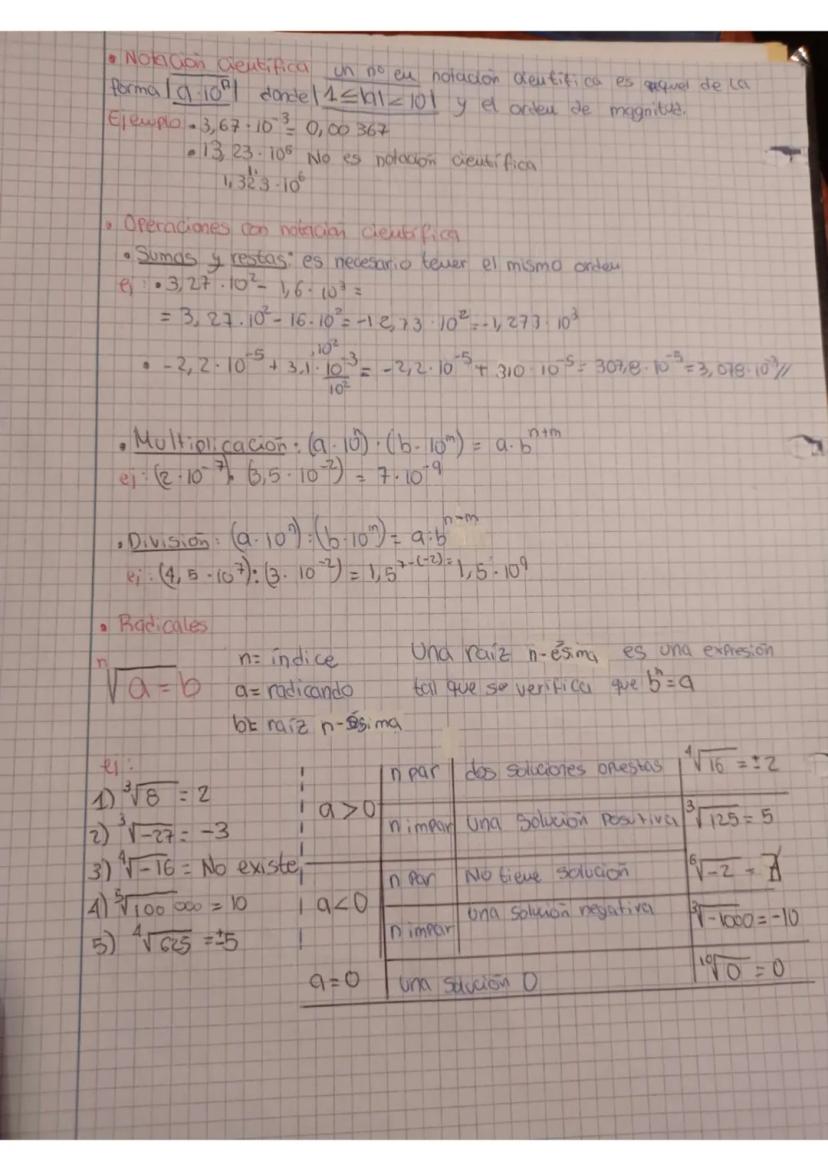 • Notación científica un nº en notación científica es aquel de la
forma |a·10ⁿ| donde |1≤|a|<10| y el orden de magnitud.
Ejemplo • 3,67·10⁻³ = 0,00367
• 13,23·10⁵ No es notación científica
1,323·10⁶
• Operaciones con notación científica
• Sumas y restas: es necesario tener el mismo orden
ej: • 3,27·10² - 1,6·10³ =
= 3,27·10² - 16·10² = -12,73·10² = -1,273·10³
• -2,2·10⁻⁵ + 3,1·10⁻³·10²/10² = -2,2·10⁻⁵ + 310·10⁻⁵ = 307,8·10⁻⁵ = 3,078·10⁻³//
• Multiplicación: (a·10ⁿ)·(b·10ᵐ) = a·bⁿ⁺ᵐ
ej: (2·10⁻⁷)·(3,5·10⁻²) = 7·10⁻⁹
• División: (a·10ⁿ):(b·10ᵐ) = a:bⁿ⁻ᵐ
ej: (4,5·10⁷):(3·10⁻²) = 1,5⁷⁻⁽⁻²⁾ = 1,5·10⁹
• Radicales
ⁿ√a = b n = índice Una raíz n-ésima es una expresión
a = radicando tal que se verifica que bⁿ=a
b = raíz n-ésima
ej:
1) ³√8 = 2
2) ³√-27 = -3
3) ⁴√-16 = No existe
4) ⁵√100000 = 10
5) ⁴√625 = ±5
a>0 n par dos soluciones opuestas ⁴√16 = ±2
n impar una solución positiva ³√125 = 5
a<0 n par No tiene solución ⁶√-2 = ∄
n impar una solución negativa ³√-1000 = -10
a=0 una solución 0 ¹⁰√0 = 0